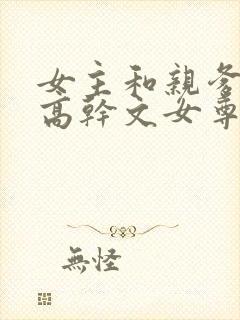 女主和親爹
高幹文女尊
無怪